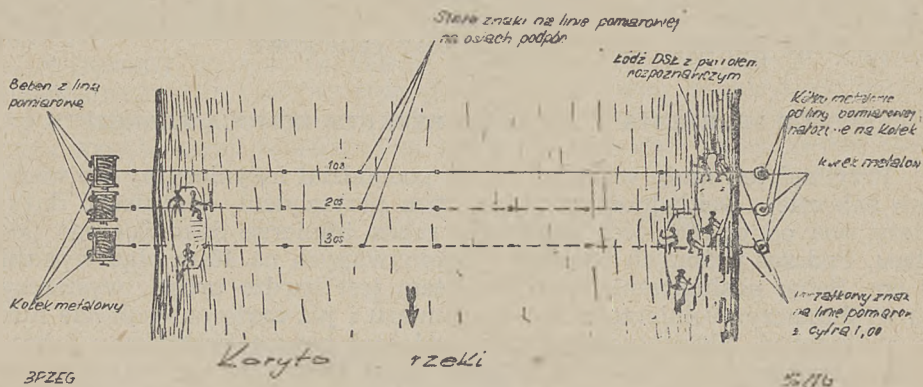 Stałe znaki na linie pomiarowej
na osiach podpór
Łódź DSŁ z patrolem
rozpoznawczym
Bęben z liną
pomiarową
Kółko metalowe
od liny pomiarowej
nałożone na kołek
kołek metalow
1 oś
2 oś
3 oś
Kołek metalowy
znak
na linie pomiarow
z cyfrą 1,00
Koryto rzeki
BRZEG